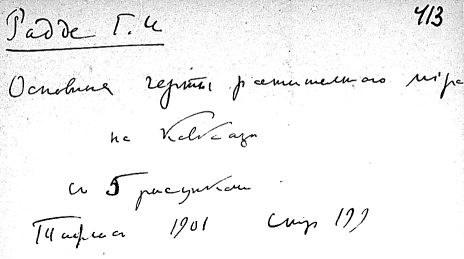 Радде Г. И 413
Основныя черты растительного міра
на Кавказѣ
съ 5 рисунками
Тифлис 1901 Стр 199